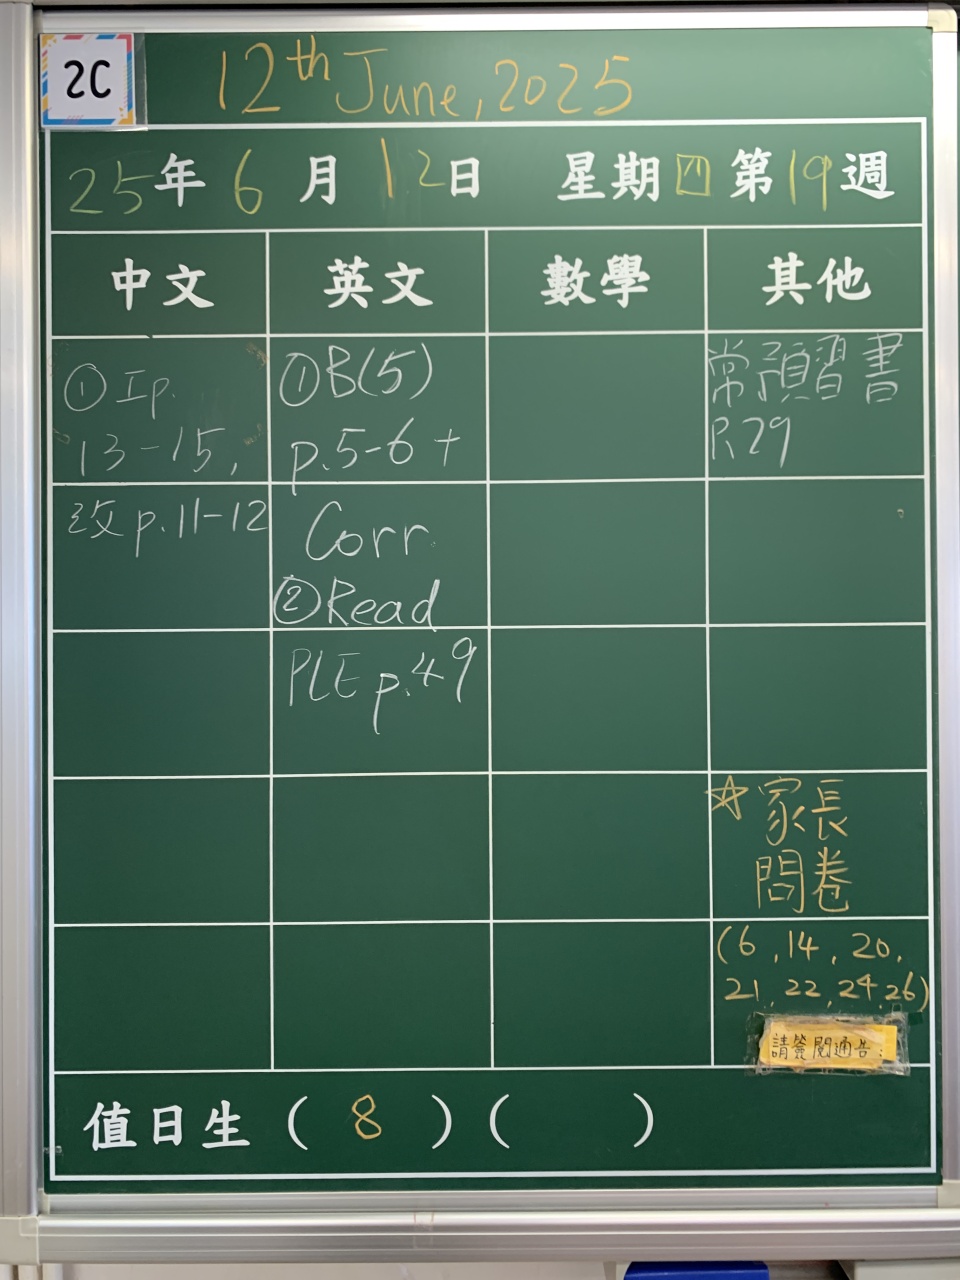 2C
12th June, 2025
25年6月12日 星期四 第19週
中文 英文 數學 其他
①Ip.
13-15,
改p.11-12
①B(5)
p.5-6+
Corr.
②Read
PLE p.49
常預習書
P.29
☆家長
問卷
(6, 14, 20,
21, 22, 24, 26)
請簽閱通告：
值日生（ 8 ）（ ）